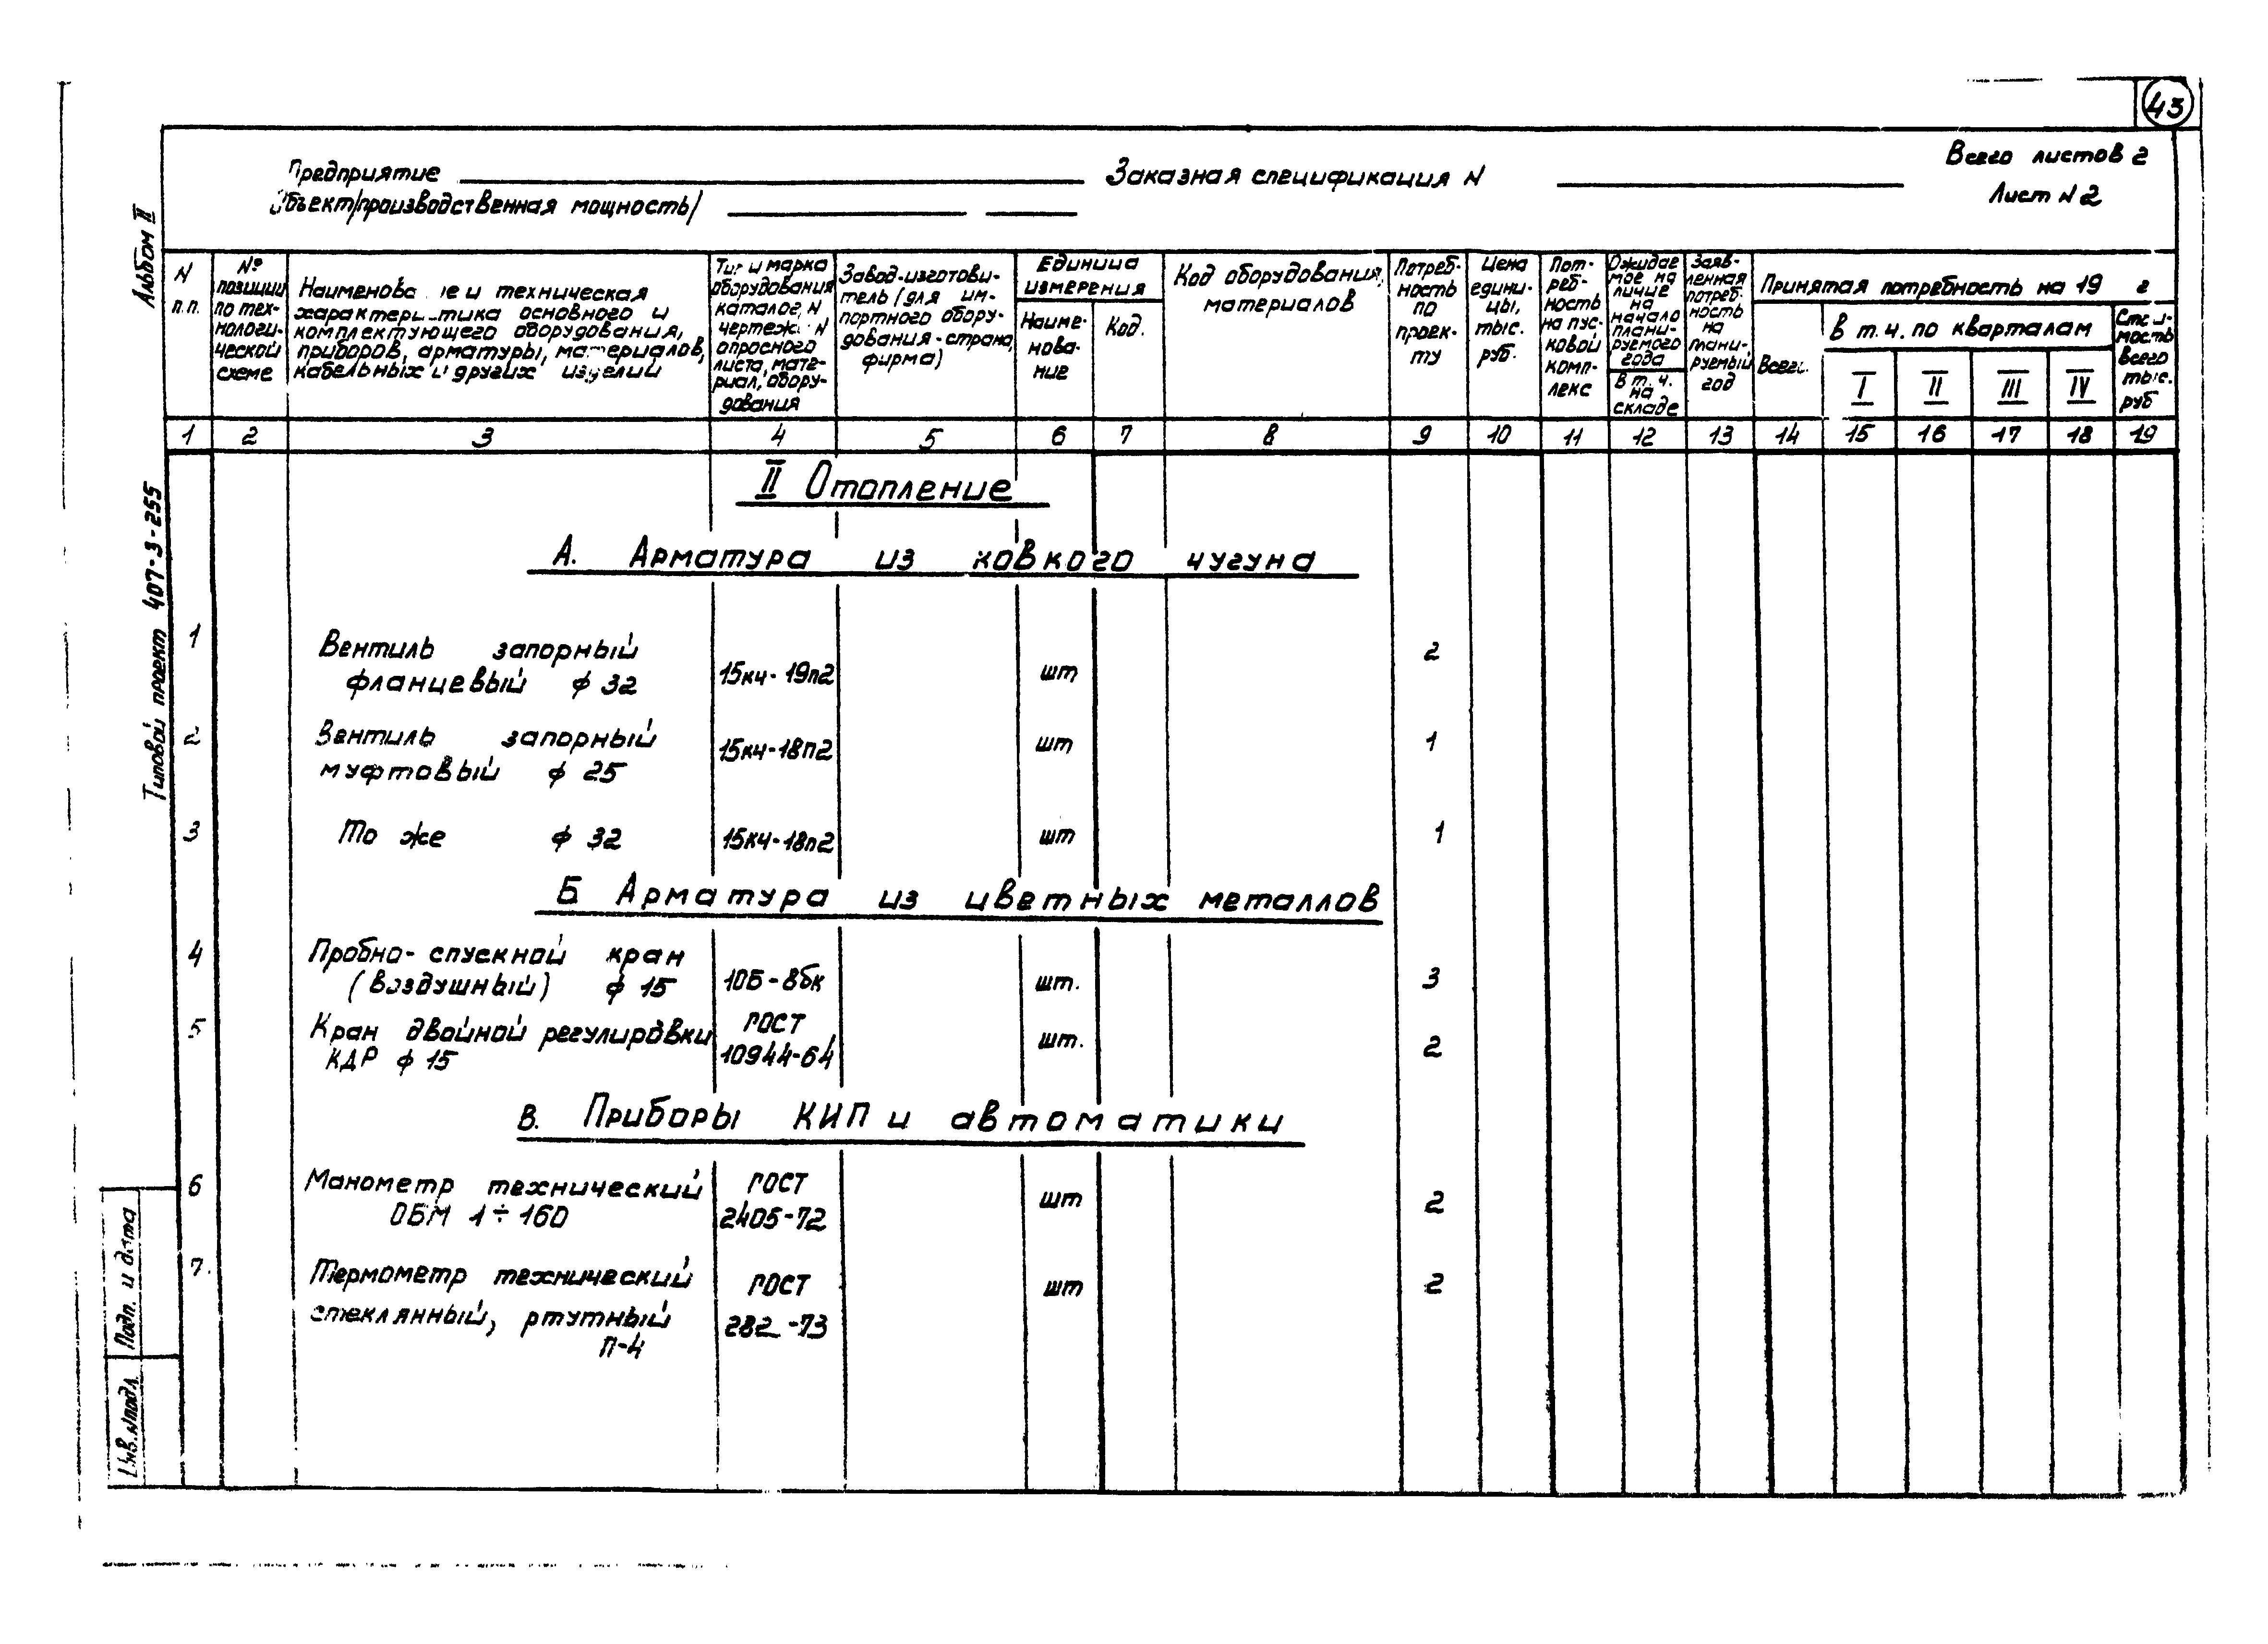 43
Предприятие Заказная спецификация N
Всего листов 2
Объект/производственная мощность/
Лист N 2
Альбом II
Типовой проект 407-3-255
Подп. и дата
Инв.№подл.
N п.п.
№ позиции по тех-нологи-ческой схеме
и техническая
основного и
комплектующего оборудования,
приборов, арматуры, материалов,
кабельных и других изделий
Тип и марка
оборудования
каталог, N
чертеж. N
опросного
листа, мате-
риал, обору-
дования
Завод-изготови-
тель (для им-
портного обору-
дования-страна,
фирма)
Единица
измерения
Наиме-
нова-
ние
Код.
Код оборудования,
материалов
Потреб-
ность
по
проек-
ту
Цена
едини-
цы,
тыс.
руб.
Пот-
реб-
ность
на пус-
ковой
комп-
лекс
Ожидае
мое на
личие
на
начало
плани-
руемого
года
В т. ч.
на
складе
Заяв-
ленная
потреб.
ность
на
плани-
руемый
год
Принятая потребность на 19 г
Всего.
В т. ч. по кварталам
I II III IV
Стои-
мость
всего
тыс.
руб
1 2 3 4 5 6 7 8 9 10 11 12 13 14 15 16 17 18 19
II Отопление
А. Арматура из ковкого чугуна
1 Вентиль запорный 2
фланцевый ф 32 15кч-19п2 шт
2 Вентиль запорный 15кч-18п2 шт 1
муфтовый ф 25
3 То же ф 32 15кч-18п2 шт 1
Б Арматура из цветных металлов
4 Пробно-спускной кран
(воздушный) ф 15 10Б-8бк шт. 3
5 Кран двойной регулировки ГОСТ шт.
КДР ф 15 10944-64 2
В. Приборы КИП и автоматики
6 Манометр технический ГОСТ шт 2
ОБМ 1÷160 2405-72
7. Термометр технический ГОСТ шт 2
стеклянный, ртутный 282-73
П-4